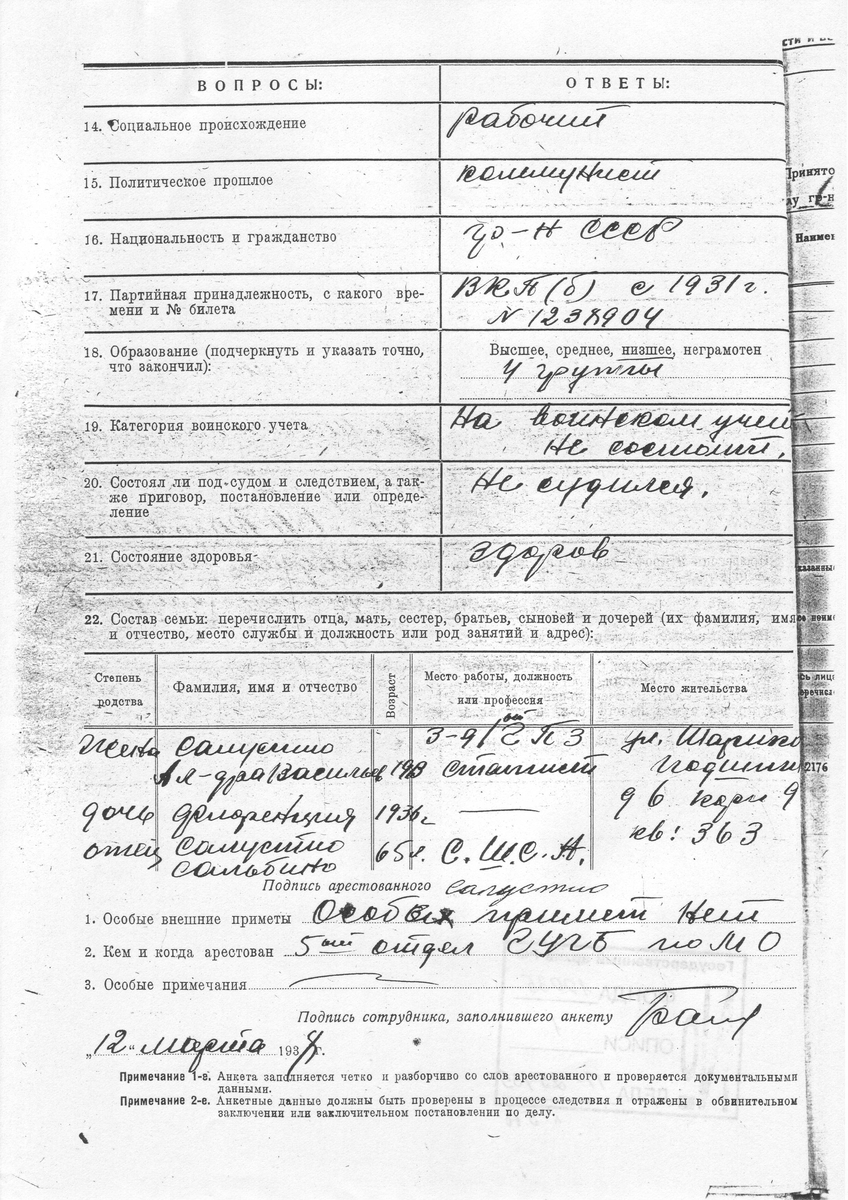 ВОПРОСЫ: ОТВЕТЫ:
14. Социальное происхождение рабочий
15. Политическое прошлое коммунист
16. Национальность и гражданство гр-н СССР
17. Партийная принадлежность, с какого вре- ВКП(б) с 1931 г.
мени и № билета N 1238904
18. Образование (подчеркнуть и указать точно, Высшее, среднее, низшее, неграмотен
что закончил): 4 группы
19. Категория воинского учета На воинском учет
не состоит.
20. Состоял ли под судом и следствием, а так- Не судился.
же приговор, постановление или опреде-
ление
21. Состояние здоровья здоров
22. Состав семьи: перечислить отца, мать, сестер, братьев, сыновей и дочерей (их фамилия, имя
и отчество, место службы и должность или род занятий и адрес):
Степень родства Фамилия, имя и отчество Возраст Место работы, должность или профессия Место жительства
Жена Салустио З-д 2ой ПЗ ул. Шарико
Ал-дра Васильев статист подшип
дочь Флоренция 1936 г — д 6 корп 9
отец Салустио 65 л. С.Ш.С.А. кв: 363
Сальбино
Подпись арестованного Салустио
1. Особые внешние приметы Особых примет нет
2. Кем и когда арестован 5ый отдел ГУГБ по МО
3. Особые примечания
Подпись сотрудника, заполнившего анкету
„12“ марта 1938 г.
Примечание 1-е. Анкета заполняется четко и разборчиво со слов арестованного и проверяется документальными
данными.
Примечание 2-е. Анкетные данные должны быть проверены в процессе следствия и отражены в обвинительном
заключении или заключительном постановлении по делу.
Принято
Наимен
2176